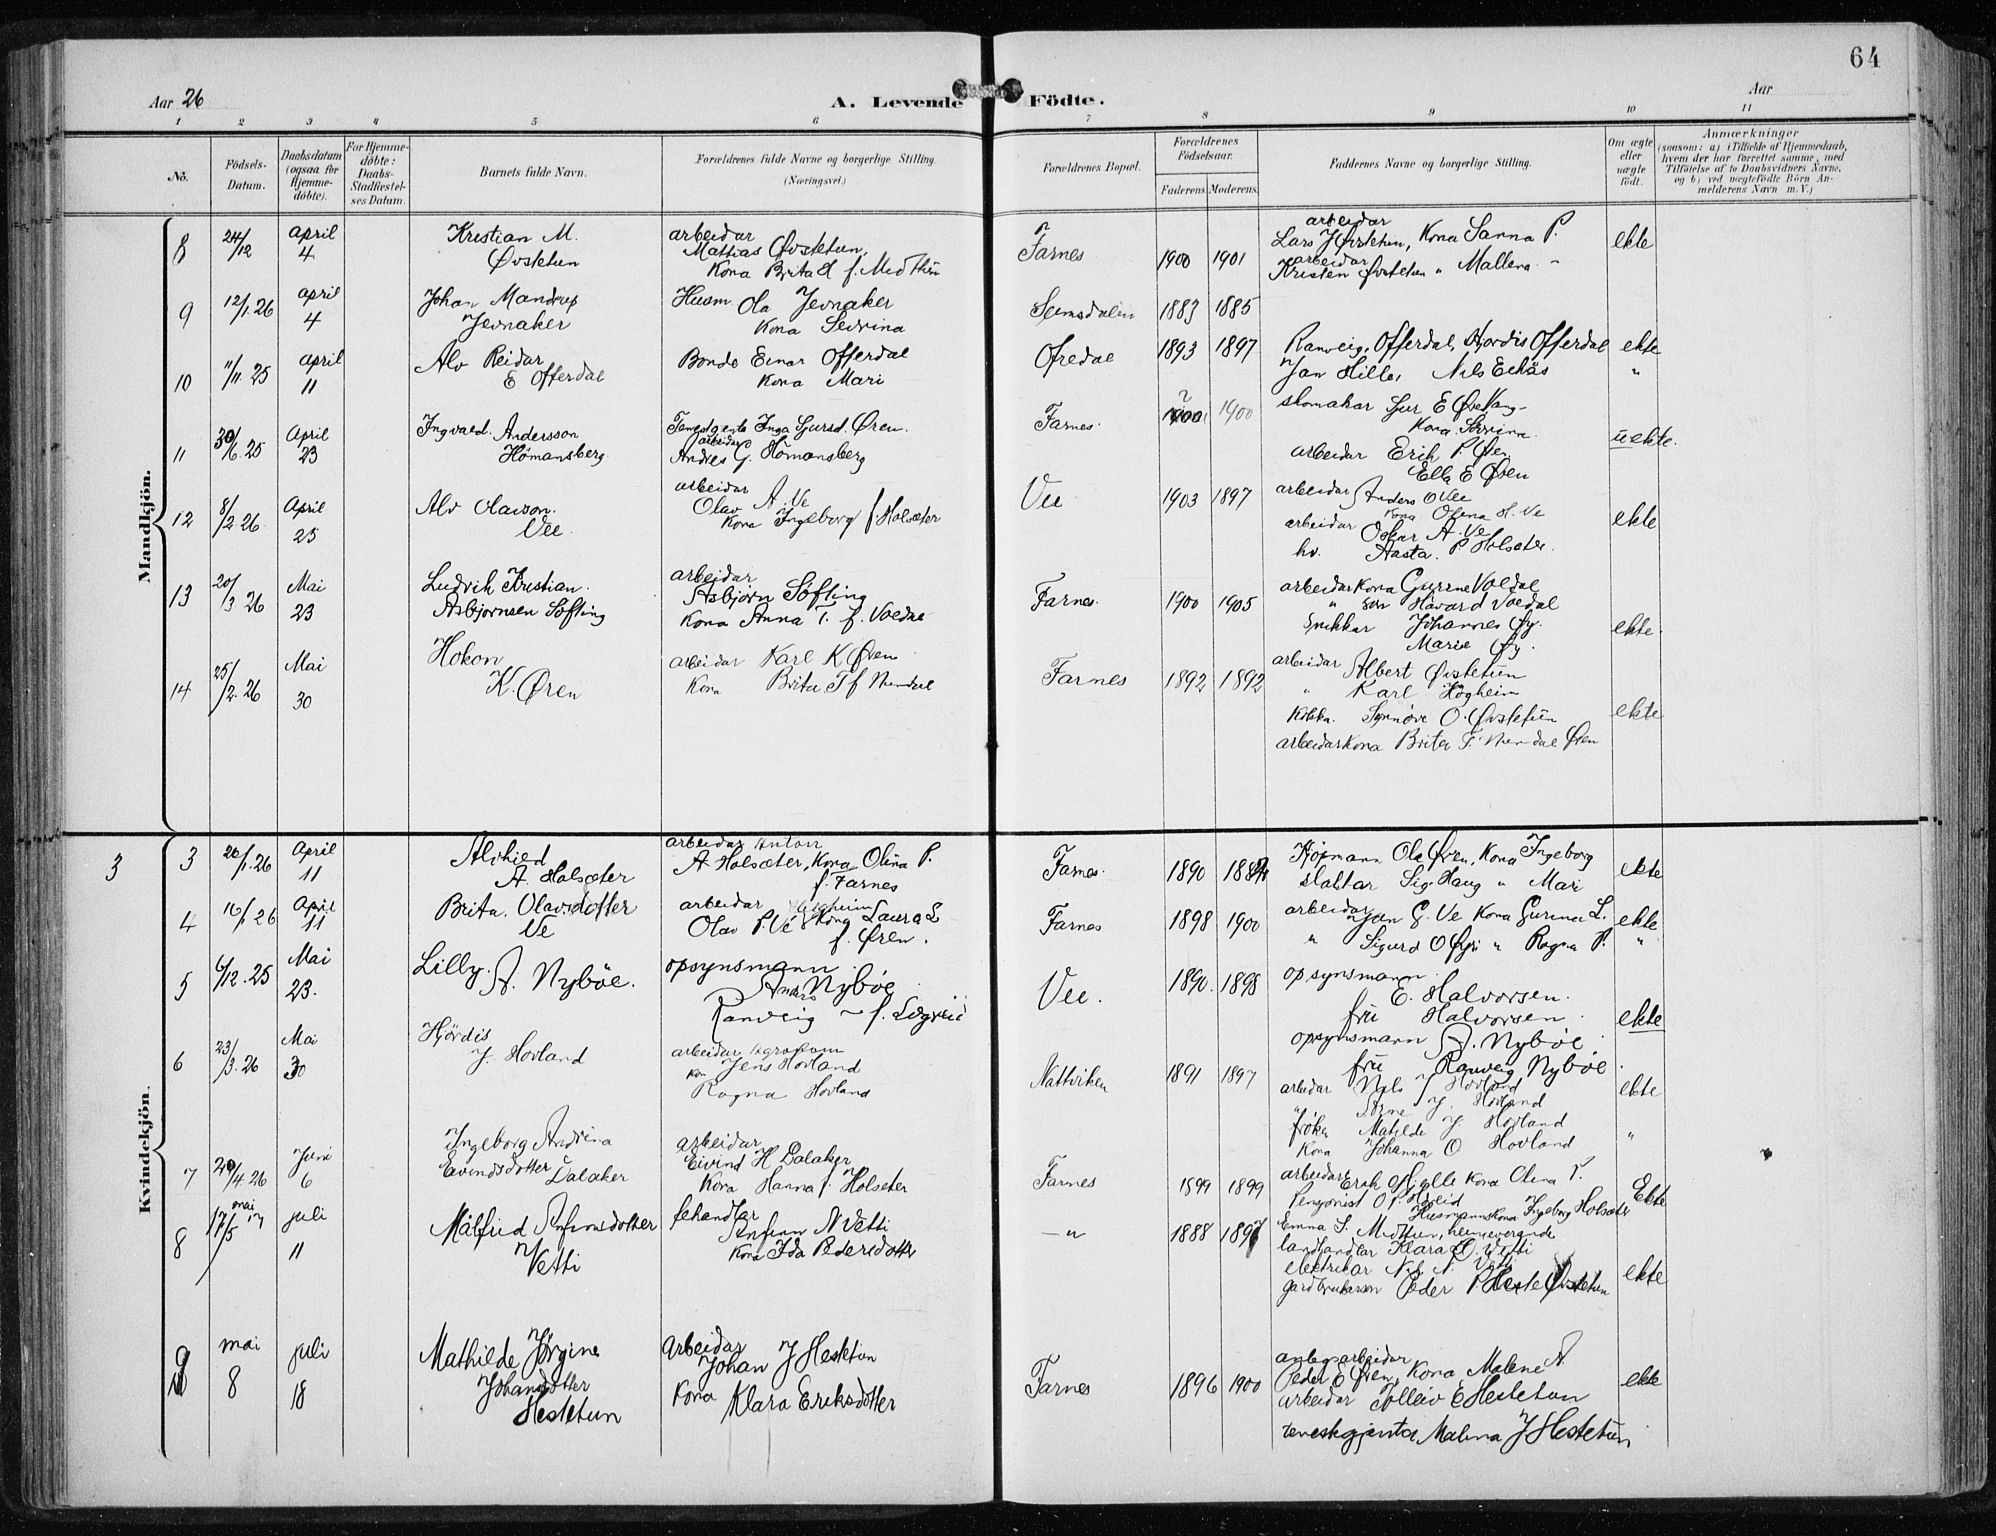 64
Aar 26
A. Levende Födte.
Aar
1 2 3 4 5 6 7 8 9 10 11
No.
Födsels-Datum.
Daabsdatum (ogsaa for Hjemme-döbte).
For Hjemme-döbte: Daabs-Stadfæstel-ses Datum.
Barnets fulde Navn.
Forældrenes fulde Navne og borgerlige Stilling.
(Næringsvei.)
Forældrenes Bopæl.
Forældrenes Födselsaar.
Faderens. Moderens.
Faddernes Navne og borgerlige Stilling.
Om ægte eller uægte födt.
Anmærkninger
(saasom: a) i Tilfælde af Hjemmedaab,
hvem der har forrettet samme, med
Tilföielse af to Daabsvidners Navne.
og b) ved uægtefödte Börn An-
melderens Navn m. V.)
Mandkjön.
8 24/12 april 4 Kristian M. Øvstetun
arbeidar
Mathias Øvstetun,
Kona Brita f. Midthun
Farnes 1900 1901
arbeidar
Lars J Øvstetun, Kona Sanna P.
arbeidar
Kristen Øvstetun " Mallena
ekte
9 12/1.26 april 4 Johan Mandrup Jevnaker
Husm. Ola Jevnaker
Kona Sevrina
Seimsdalen 1883 1885
10 11/11.25 april 11 Alv Reidar E Offerdal
Bonde Einar Offerdal
Kona Mari
Ofredal 1893 1897
Ranveig Offerdal, Hjordis Offerdal
Jan Hiller Nils Eikås
ekte
"
11 30/6.25 April 23 Ingvald Andersson Hömansberg.
Tenestgenta Inga Sjursd. Øren.
arbeidar
Andres G. Hömansberg
Farnes. 1900
skomakar Sjur E Øren
Kona Sevrina
arbeidar Erik P. Øren
Ella E Øren
uekte.
12 8/2.26 April 25 Alv Olavson. Vee.
arbeidar
Olav A. Ve
Kona Ingeborg f Holsæter
Vee 1903 1897
arbeidar Anders O Vee
Kona Olina H. Ve
arbeidar Oskar A. Ve
hv. Aasta. P Holsæter.
ekte
13 20/3 26 Mai 23 Ludvik Kristian. Asbjørnsen Söfting
arbeidar
Asbjörn Söfting
Kona Anna T. f. Voldal
Farnes. 1900 1905
arbeidarkona Gurine Voldal
" son Håvard Voldal
Snikkar Johannes Øy.
Marie Øy.
ekte.
14 25/2.26 Mai 30 Hokon K. Øren
arbeidar Karl K Øren
Kona Brita T f Mundal
Farnes 1892 1892
arbeidar Albert Øvstetun
" Karl Högheim
Kokka. Synnöve O. Øvstetun
arbeidarkona Brita T. Mundal Øren
ekte
Kvindekjön.
3
3 26/1.26 April 11 Alvhild A. Holsæter
arbeidar Anton
A Holsæter, Kona Olina P.
f. Farnes
Farnes.
1890
Kjöpmann Ola Øren, Kona Ingeborg
slaktar Sig. Haug " Mari
ekte
4 10/1 26 April 11 Brita. Olavsdotter Ve
arbeidar
Olav P. Ve Kona Laura L
f. Øren.
Farnes 1898 1900
arbeidar
Jan G. Ve Kona Gurina L.
" Sigurd O Øyri " Ragna P.
ekte
"
5 6/12.25 Mai 23. Lilly. A. Nyböe.
opsynsmann
Anders Nyböe
Ranveig f. Lægreid
Vee. 1890. 1898
opsynsmann
E. Halvorsen.
fru Halvorsen.
opsynsmann A. Nyböe.
fru Ranveig Nyböe.
ekte
6 23/3.26 Mai 30 Hjördis J. Hovland
arbeidar agronom
Jens Hovland
Ragna Hovland
Nattviken 1891 1897
arbeidar Nils J Hovland
" Arne J. Hovland
fröken Matilde J Hovland
Kona Johanna O Hovland
ekte
"
7 20/4 26 Juni 6 Ingeborg Andrina Eivindsdotter Dalaker
arbeidar
Eivind H Dalaker
Kona Hanna f. Holseter
Farnes 1899 1899
arbeidar Erik Hjelle Kona Olina T.
Pensjonist O P. Hæreid
Husmannskona Ingeborg Holsæter
Ekte
8 mai 17/5 juli 11 Målfrid Anfinnsdotter Vetti
fehandlar
Anfinn N Vetti
Kona Ida Pedersdotter
— " 1888 1897
Emma S. Midttun, heimeverande
landhandlar Klara O. Vetti
elektrikar Nils N. Vetti
gardbrukarson Peder P Øvstetun
ekte
9 mai 8 juli 18 Mathilde Jørgine Johansdotter Hestetun
Arbeidar
Johan J Hestetun
Kona Klara Eriksdotter
Farnes 1896 1900
anlegsarbeidar
Peder E Øren, Kona Malene A.
arbeidar Tolleiv E Hestetun
teneskgjenta Malena J Hestetun
ekte